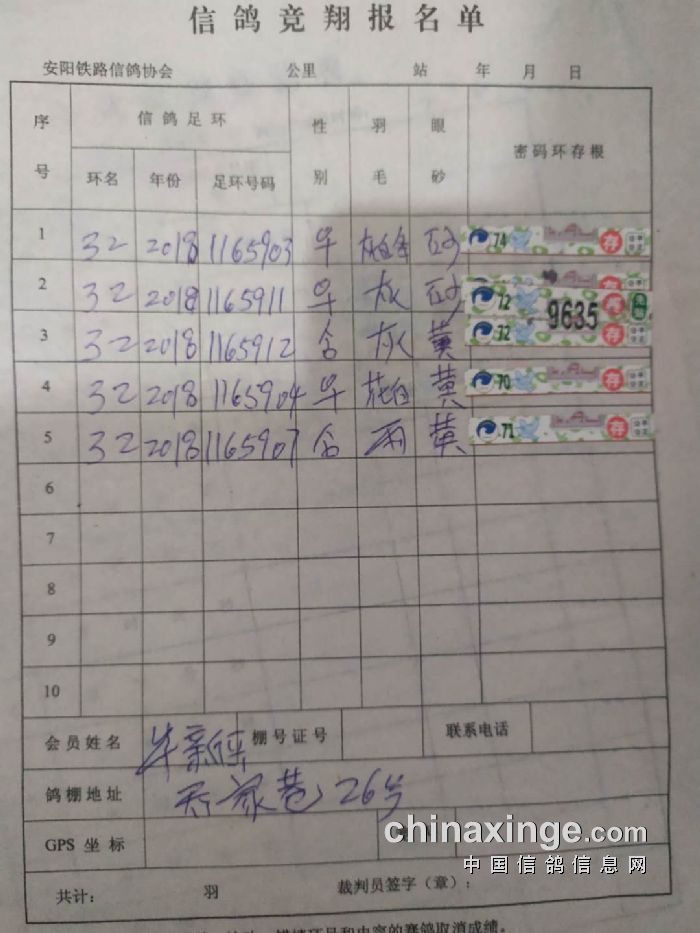 信鸽竞翔报名单
安阳铁路信鸽协会 公里 站 年 月 日
序号 信鸽足环 性别 羽毛 眼砂 密码环存根
环名 年份 足环号码
1 32 2018 1165903 砂 74 存
2 32 2018 1165911 灰 砂 12
9635
3 32 2018 1165912 灰 黄 32 存
4 32 2018 1165904 花白 黄 70 存
5 32 2018 1165907 雨 黄 71 存
6
7
8
9
10
会员姓名 牛新 棚号证号 联系电话
鸽棚地址 家巷26号
GPS 坐标
共计： 羽 裁判员签字（章）：
chinaxinge.com
中国信鸽信息网
环号和内容的赛鸽取消成绩。